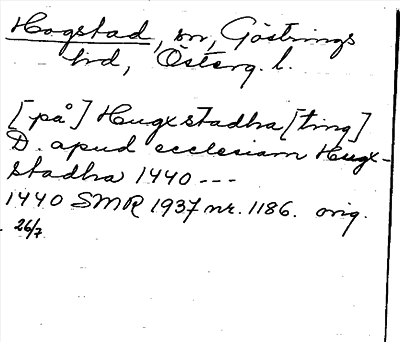 Hogstad, sn, Göstrings
hd, Österg. l.
[på] Hugxstadha [ting]
D. apud ecclesiam Hugx-
stadha 1440 ---
1440 SMR 1937 nr. 1186. orig.
26/7